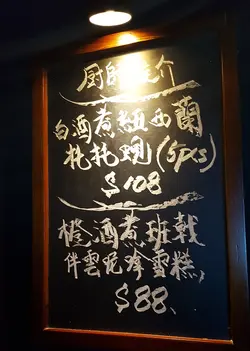 厨師推介
白酒煮紐西蘭
牝牝蜆(5pcs)
$108
橙酒煮班戟
伴雲呢嗱雪糕,
$88.